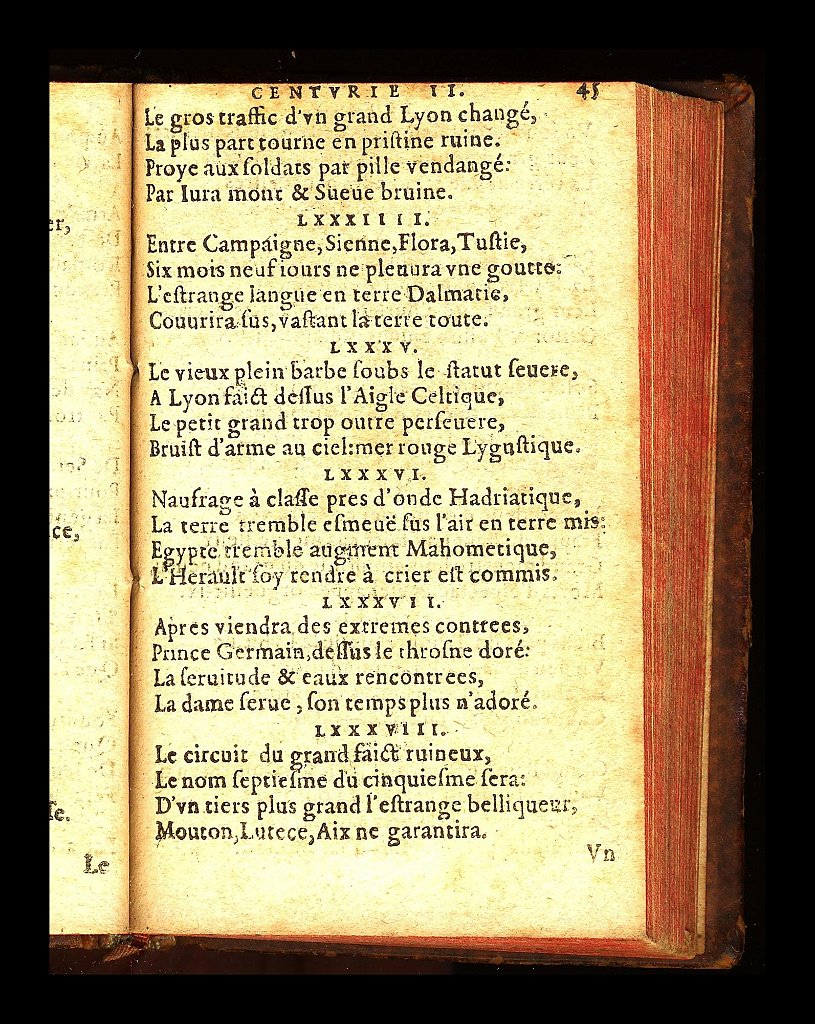 er,
ce,
se.
Le
CENTVRIE II. 45
Le gros traffic d'vn grand Lyon changé,
La plus part tourne en pristine ruine.
Proye aux soldats par pille vendangé:
Par Iura mont & Sueue bruine.
LXXXIIII.
Entre Campaigne, Sienne, Flora, Tustie,
Six mois neuf iours ne pleuura vne goutte:
L'estrange langue en terre Dalmatie,
Couurira sus, vastant la terre toute.
LXXXV.
Le vieux plein barbe soubs le statut seuere,
A Lyon faict dessus l'Aigle Celtique,
Le petit grand trop outre perseuere,
Bruist d'arme au ciel: mer rouge Lygustique.
LXXXVI.
Naufrage à classe pres d'onde Hadriatique,
La terre tremble esmeuë sus l'air en terre mis:
Egypte tremble augment Mahometique,
L'Herault soy rendre à crier est commis.
LXXXVII.
Apres viendra des extremes contrees,
Prince Germain, dessus le throsne doré:
La seruitude & eaux rencontrees,
La dame serue, son temps plus n'adoré.
LXXXVIII.
Le circuit du grand faict ruineux,
Le nom septiesme du cinquiesme sera:
D'vn tiers plus grand l'estrange belliqueur,
Mouton, Lutece, Aix ne garantira.
Vn